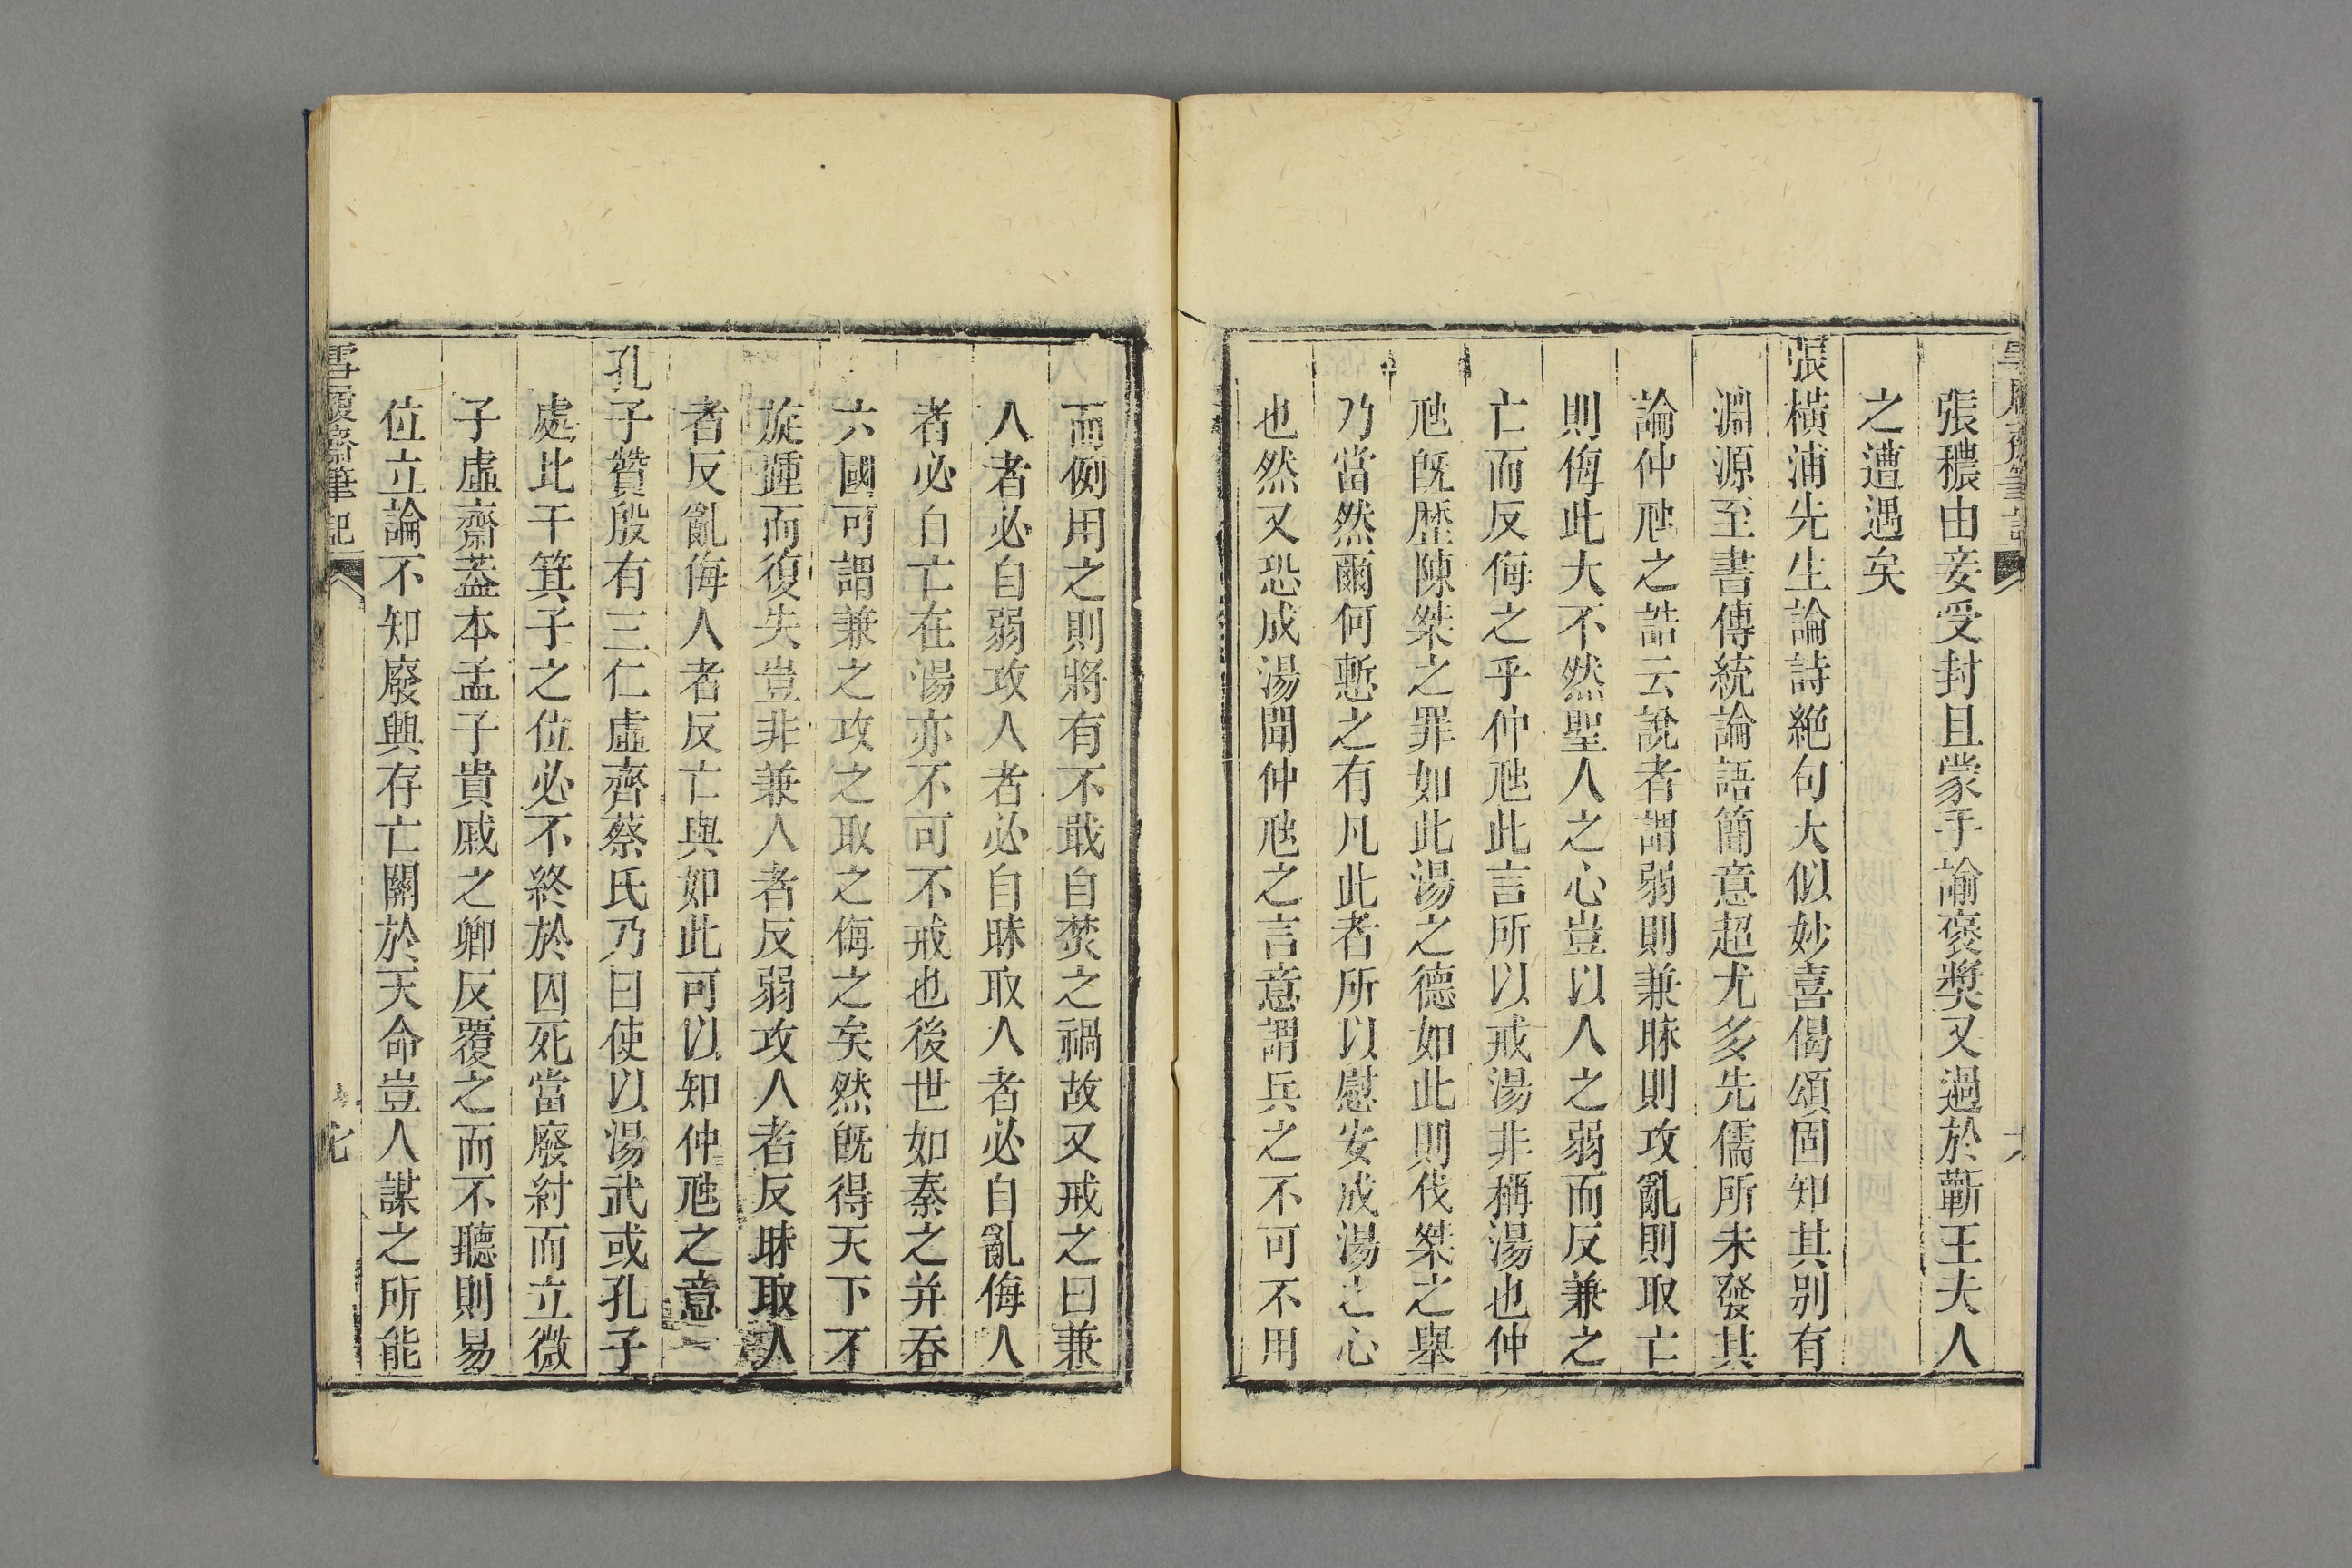 張穠由妾受封且蒙手諭褒奬又過於蘄王夫人
之遭遇矣
張橫浦先生論詩絶句大似妙喜偈頌固知其别有
淵源至書傳統論語簡意超尤多先儒所未發其
論仲虺之誥云說者謂弱則兼昧則攻亂則取亡
則侮此大不然聖人之心豈以人之弱而反兼之
亡而反侮之乎仲虺此言所以戒湯非稱湯也仲
虺旣歷陳桀之罪如此湯之德如此則伐桀之舉
乃當然爾何慙之有凡此者所以慰安成湯之心
也然又恐成湯聞仲虺之言意謂兵之不可不用
而例用之則將有不戢自焚之禍故又戒之曰兼
人者必自弱攻人者必自昧取人者必自亂侮人
者必自亡在湯亦不可不戒也後世如秦之并吞
六國可謂兼之攻之取之侮之矣然旣得天下不
旋踵而復失豈非兼人者反弱攻人者反昧取人
者反亂侮人者反亡與如此可以知仲虺之意
孔子贊殷有三仁虛齊蔡氏乃曰使以湯武或孔子
處比干箕子之位必不終於囚死當廢紂而立微
子虛齋葢本孟子貴戚之卿反覆之而不聽則易
位立論不知廢興存亡關於天命豈人謀之所能
雪履齋筆記
七